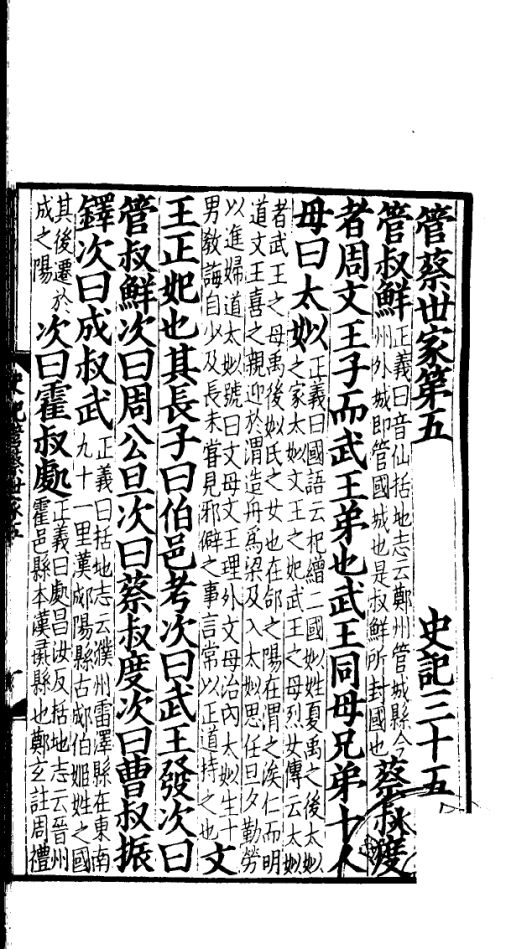 管蔡世家第五　史記三十五
管叔鮮正義曰音仙括地志云鄭州管城縣今州外城即管國城也是叔鮮所封國也蔡叔度
者周文王子而武王弟也武王同母兄弟十人
母曰太姒正義曰國語云杞繒二國姒姓夏禹之後太姒之家太姒文王之妃武王之母列女傳云太姒
者武王之母禹後姒氏之女也在郃之陽在渭之涘仁而明道文王喜之親迎於渭造舟爲梁及入太姒思任旦夕勤勞
以進婦道太姒號曰文母文王理外文母治內太姒生十男教誨自少及長未甞見邪僻之事言常以正道持之也文
王正妃也其長子曰伯邑考次曰武王發次曰
管叔鮮次曰周公旦次曰蔡叔度次曰曹叔振
鐸次曰成叔武正義曰括地志云濮州雷澤縣在東南九十一里漢郕陽縣古郕伯姬姓之國
其後遷於成之陽次曰霍叔處正義曰處昌汝反括地志云晉州霍邑縣本漢彘縣也鄭玄註周禮
史記管蔡世家五